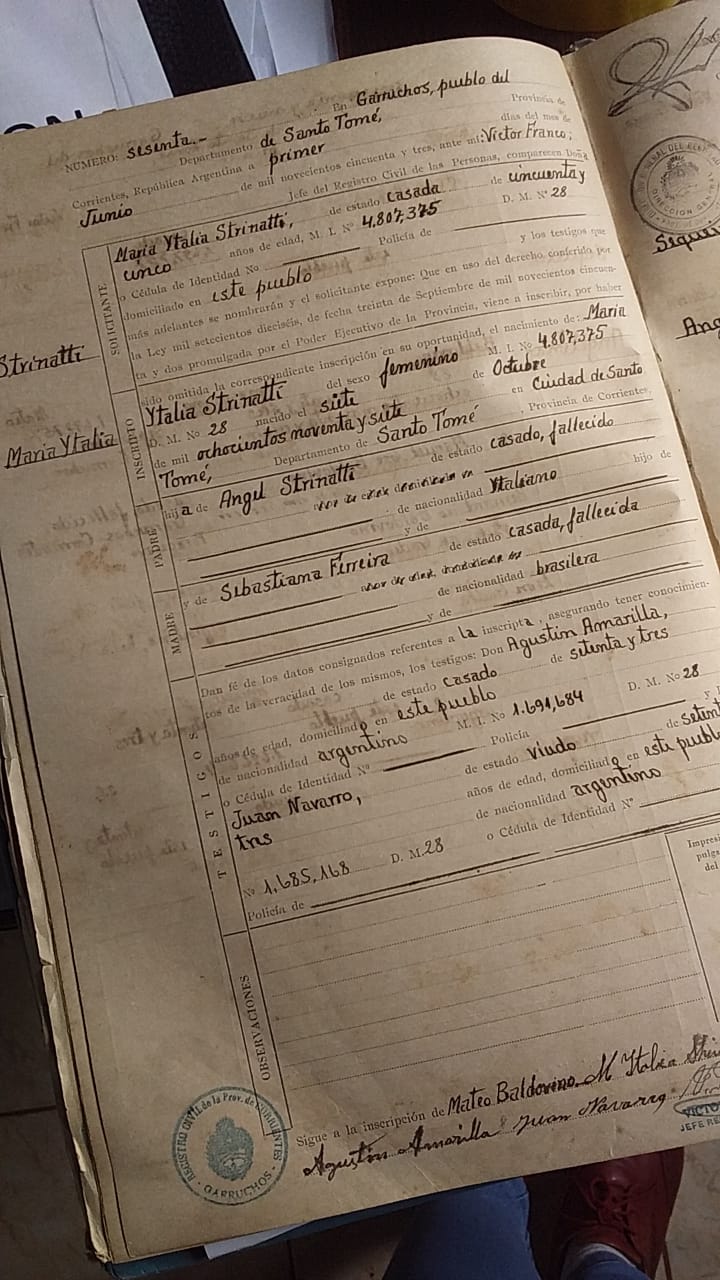 En Garruchos, pueblo del
NÚMERO: sesenta.- Departamento de Santo Tomé, Provincia de
Corrientes, República Argentina a primer días del mes de
Junio de mil novecientos cincuenta y tres, ante mí: Víctor Franco,
Jefe del Registro Civil de las Personas, comparecen Doña
SOLICITANTE
María Ytalia Strinatti, de estado casada de cincuenta y
cinco años de edad, M. I. Nº 4.807,375 D. M. Nº 28
o Cédula de Identidad No Policía de
domiciliado en este pueblo y los testigos que
más adelantes se nombrarán y el solicitante expone: Que en uso del derecho conferido por
la Ley mil setecientos dieciséis, de fecha treinta de Septiembre de mil novecientos cincuen-
ta y dos promulgada por el Poder Ejecutivo de la Provincia, viene a inscribir, por haber
sido omitida la correspondiente inscripción en su oportunidad, el nacimiento de: María
Strinatti
María Ytalia
INSCRIPTO
Ytalia Strinatti del sexo femenino M. I. Nº 4.807,375
D. M. No 28 nacido el siete de Octubre
de mil ochocientos noventa y siete en Ciudad de Santo
Tomé, Departamento de Santo Tomé, Provincia de Corrientes,
PADRE
hija de Angel Strinatti de estado casado, fallecido
años de edad, domiciliado en
de nacionalidad Ytaliano hijo de
y de
MADRE
y de Sebastiana Ferreira de estado casada, fallecida
años de edad, domiciliada en
de nacionalidad brasilera
y de
TESTIGOS
Dan fé de los datos consignados referentes a la inscripta, asegurando tener conocimien-
tos de la veracidad de los mismos, los testigos: Don Agustín Amarilla,
de estado casado de setenta y tres
años de edad, domiciliado en este pueblo
de nacionalidad argentino M. I. No 1.691,684 D. M. No 28
o Cédula de Identidad Nº Policía y
Juan Navarro, de estado viudo de
tres años de edad, domiciliado en este pueblo
de nacionalidad argentino
Nº 1,685,168 D. M. 28 o Cédula de Identidad Nº
Policía de
OBSERVACIONES
Sigue a la inscripción de Mateo Baldovino. M Ytalia
Agustín Amarilla Juan Navarro
REGISTRO CIVIL de la Prov. de CORRIENTES
GARRUCHOS